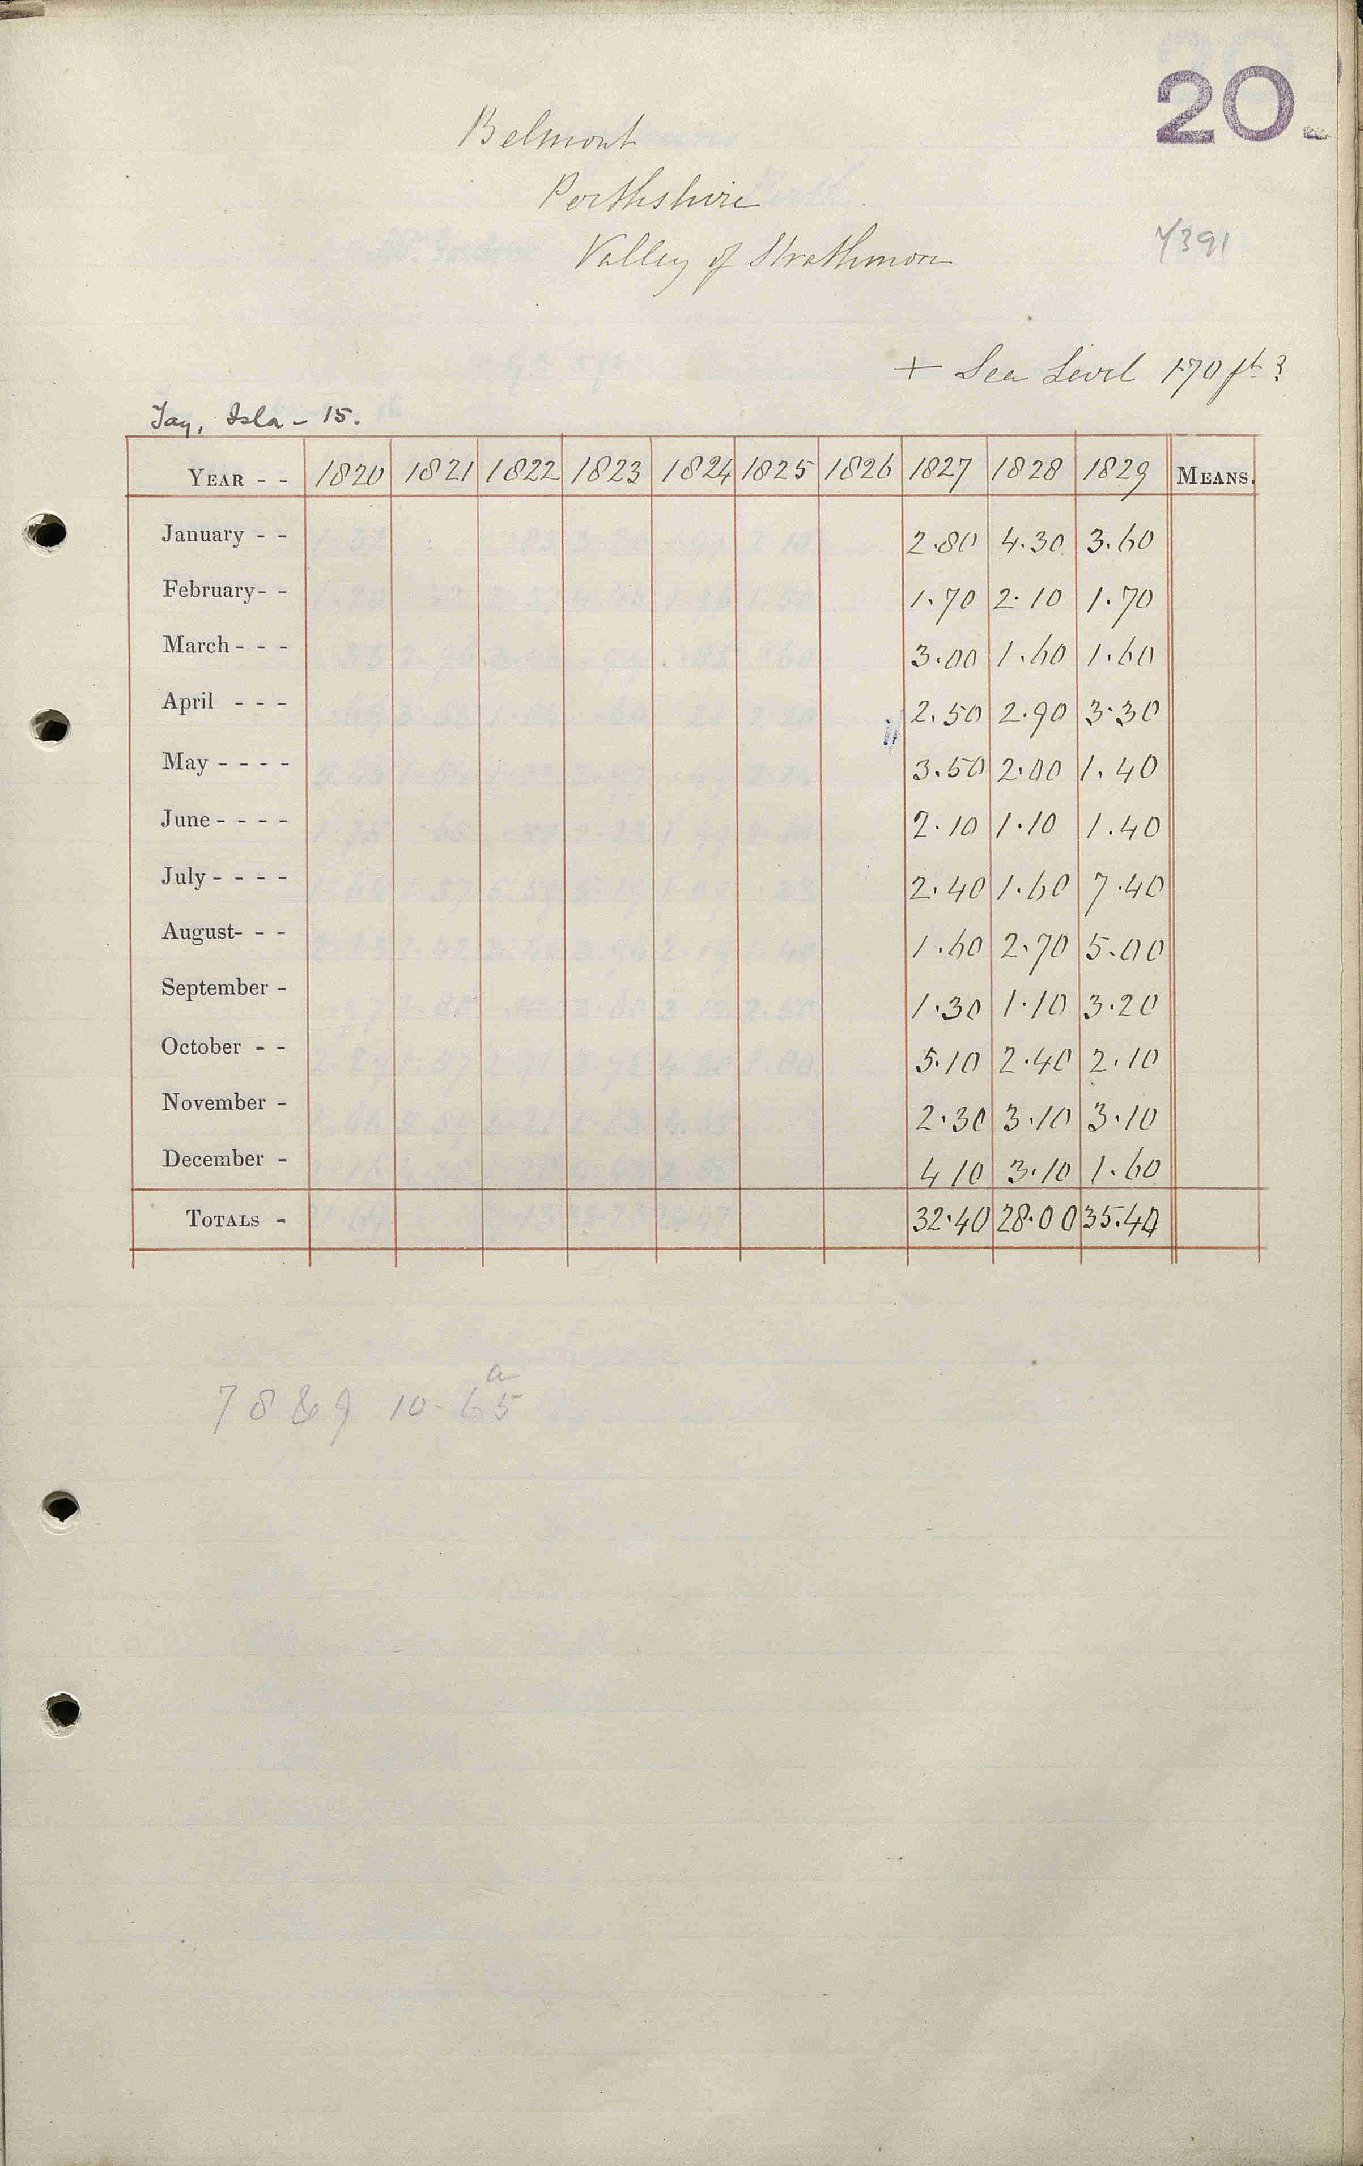 20
Belmont
Perthshire
Valley of Strathmore
7391
+ Sea Level 170 ft ?
Tay, Isla - 15.
YEAR - - 1820 1821 1822 1823 1824 1825 1826 1827 1828 1829 MEANS.
January - - 2.80 4.30 3.60
February- - 1.70 2.10 1.70
March - - - 3.00 1.60 1.60
April - - - 2.50 2.90 3.30
May - - - - 3.50 2.00 1.40
June - - - - 2.10 1.10 1.40
July - - - - 2.40 1.60 7.40
August- - - 1.60 2.70 5.00
September - 1.30 1.10 3.20
October - - 5.10 2.40 2.10
November - 2.30 3.10 3.10
December - 4 10 3.10 1.60
TOTALS - 32.40 28.00 35.40
a
10 - 65